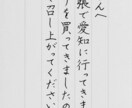 んへ
張で愛知に行ってきま
を買ってきましたの
召し上がってください